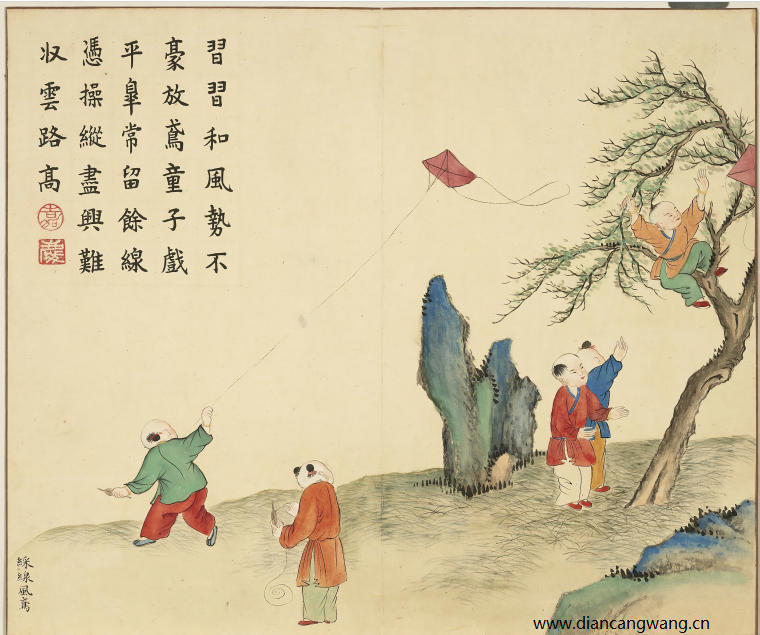 習習和風勢不
豪放鳶童子戲
平臯常留餘線
憑操縱盡興難
収雲路高
嘉
慶
綵線風鳶
www.diancangwang.cn